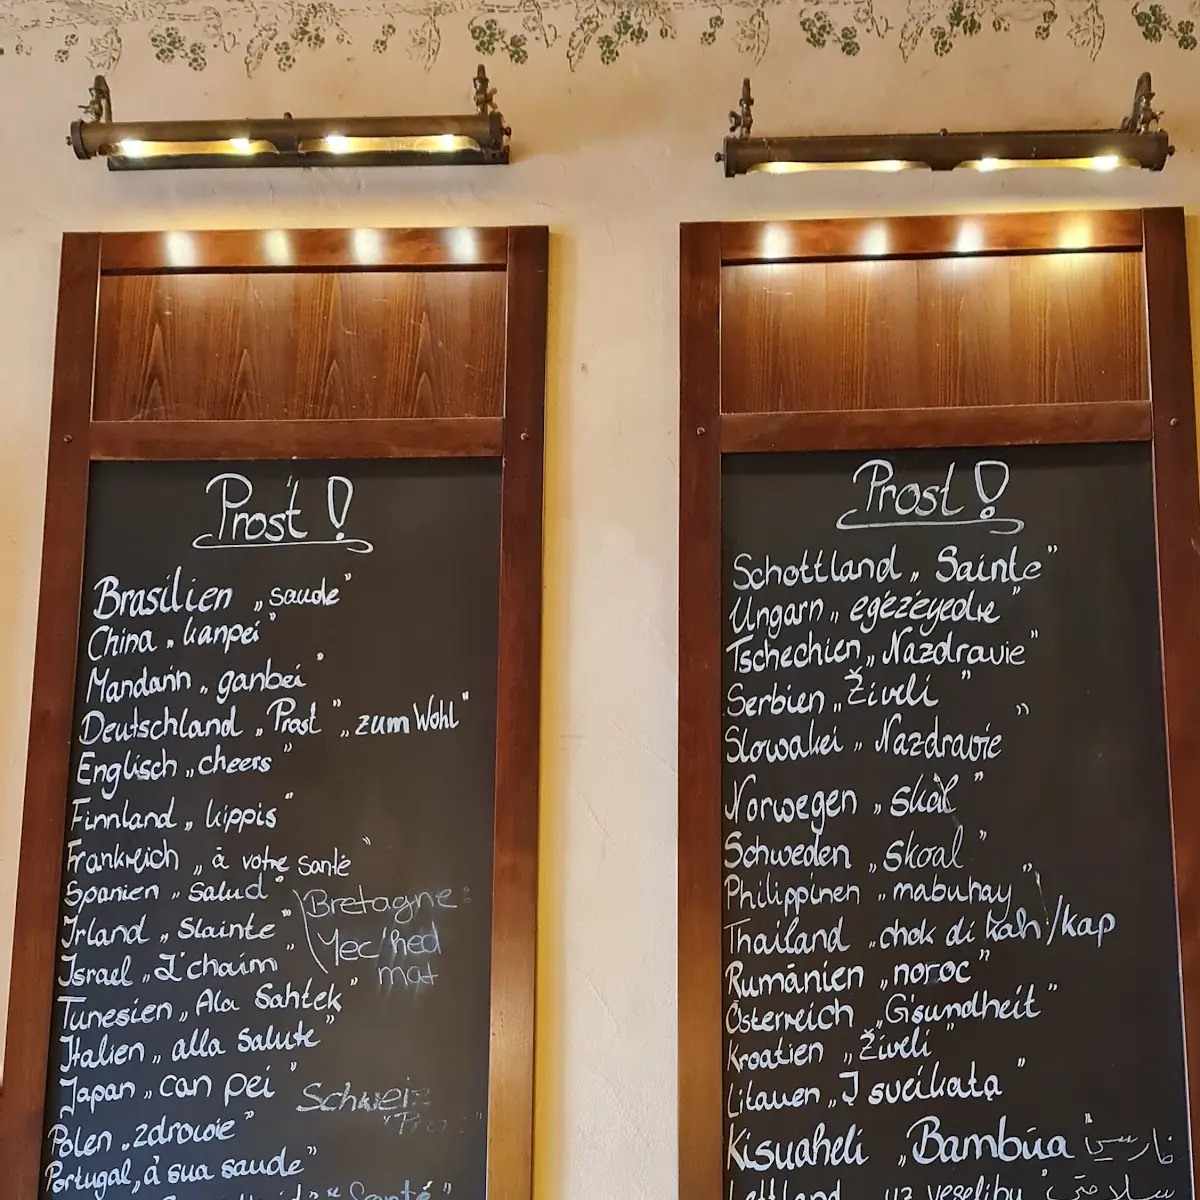 Prost!
Brasilien „saude"
China „kanpei"
Mandarin „ganbei"
Deutschland „Prost" „zum Wohl"
Englisch „cheers"
Finnland „kippis"
Frankreich „à votre santé"
Spanien „salud"
Irland „Slainte"
Israel „L'chaim"
Bretagne:
Yec'hed
mat
Tunesien „Ala Sahtek"
Italien „alla salute"
Japan „can pei"
Schweiz
Polen „zdrowie"
Portugal „á sua saude"
"Santé"
Prost!
Schottland „Sainte"
Ungarn „egézéyedre"
Tschechien „Nazdravie"
Serbien „Živeli"
Slowakei „Nazdravie"
Norwegen „skål"
Schweden „skoal"
Philippinen „mabuhay"
Thailand „chok di kah/kap
Rumänien „noroc"
Österreich „G'sundheit"
Kroatien „Živeli"
Litauen „I sveikata"
Kisuaheli „Bambúa" فارسی
Lettland „uz veselibu" سلامتی